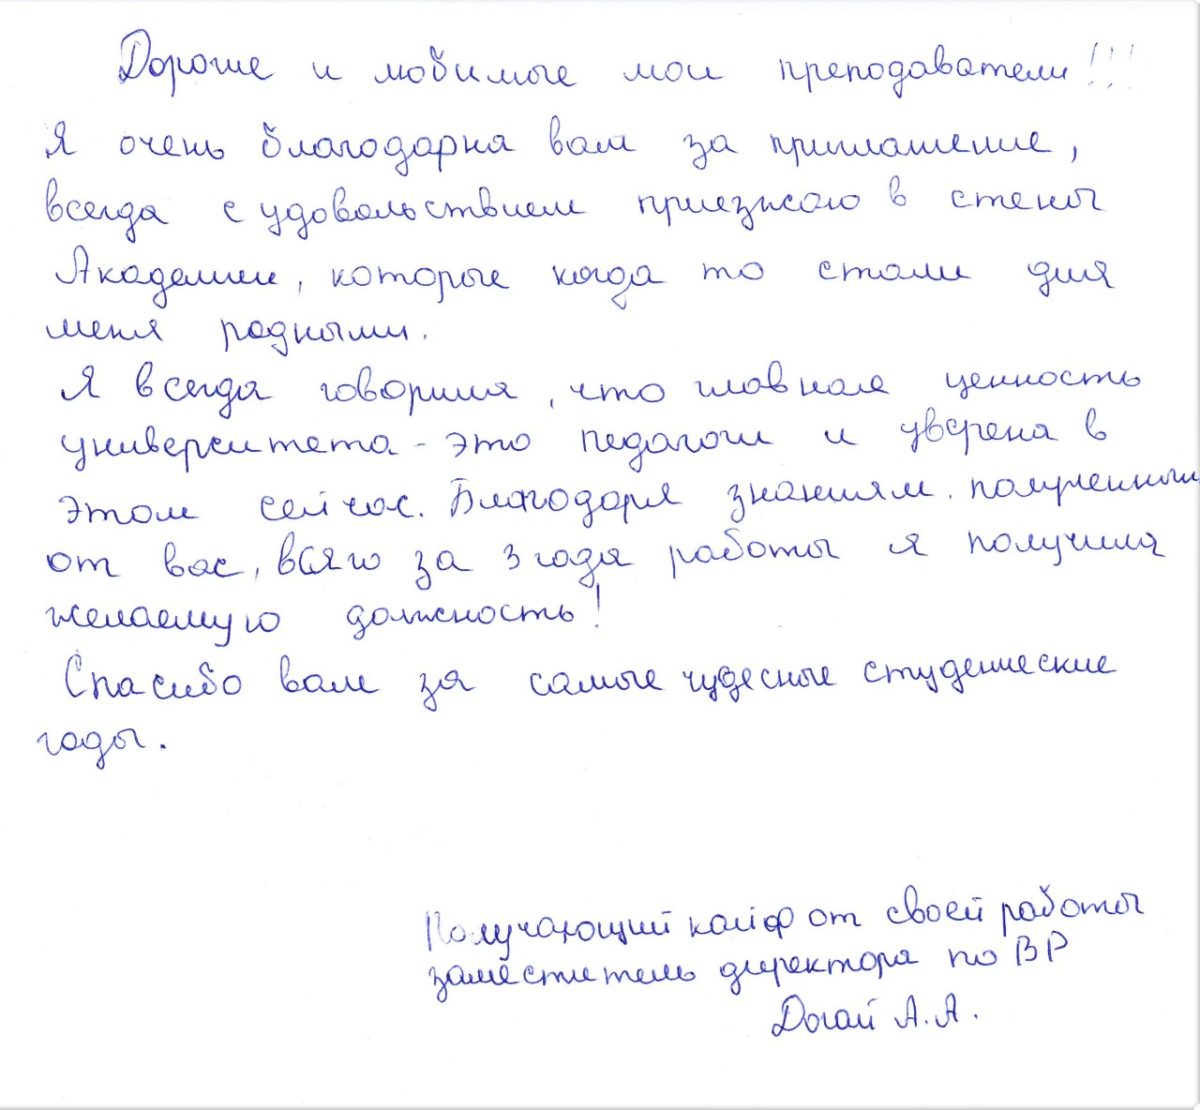 Дорогие и любимые мои преподаватели!!!
Я очень благодарна вам за приглашение,
всегда с удовольствием приезжаю в стены
Академии, которые когда то стали для
меня родными.
Я всегда говорила, что главная ценность
университета - это педагоги и уверена в
этом сейчас. Благодаря знаниям, полученным
от вас, всего за 3 года работы я получила
желаемую должность!
Спасибо вам за самые чудесные студенческие
годы.
Получающий кайф от своей работы
заместитель директора по ВР
Догай А.А.